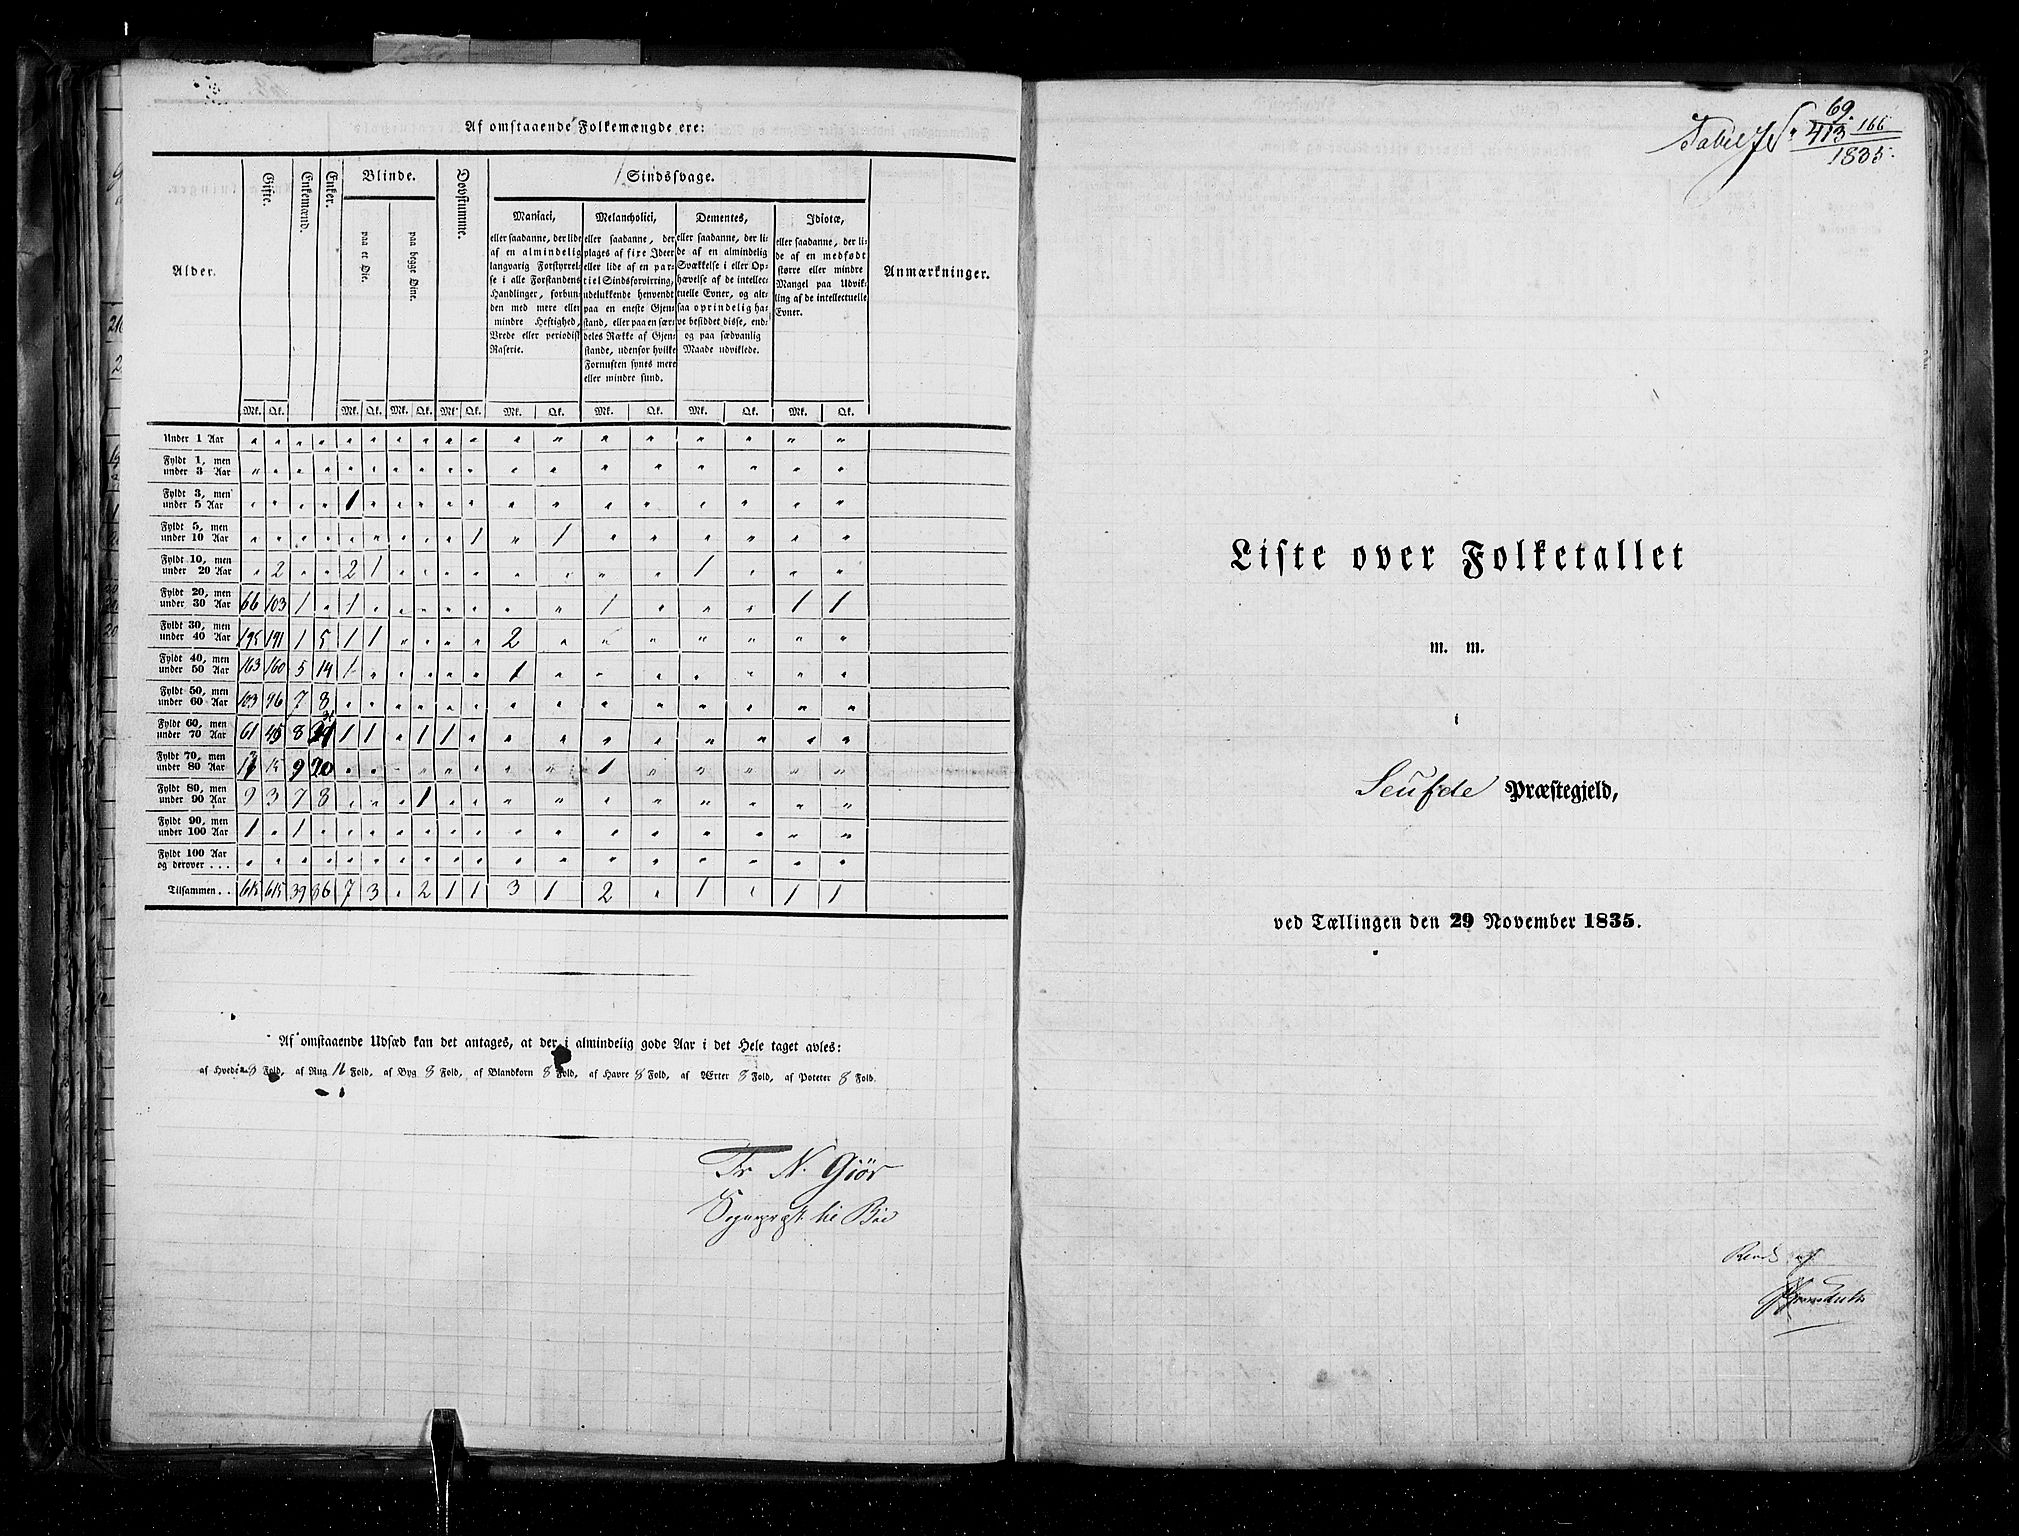 Af omstaaende Folkemængde ere:
Alder. Gifte. Enkemænd. Enker. Blinde. Dovstumme. Sindssvage. Anmærkninger.
paa et Øie. paa begge Øine.
Maniaci,
eller saadanne, der lide
af en almindelig
langvarig Forstyrrel-
se i alle Forstandens
Handlinger, forbun-
den med mere eller
mindre Heftighed,
Vrede eller periodisk
Raserie.
Melancholici,
eller saadanne, der
plages af fixe Ideer
eller lide af en par-
tiel Sindsforvirring,
udelukkende henvendt
paa en eneste Gjen-
stand, eller paa en sær-
deles Række af Gjen-
stande, udenfor hvilke
Fornuften synes mere
eller mindre sund.
Dementes,
eller saadanne, der li-
de af en almindelig
Svækkelse i eller Op-
hævelse af de intellec-
tuelle Evner, og alt-
saa oprindelig ha-
ve besiddet disse, end-
og paa sædvanlig
Maade udviklede.
Idiotæ,
eller saadanne, der li-
de af en medfødt
større eller mindre
Mangel paa Udvik-
ling af de intellectuelle
Evner.
Mk. Qk. Mk. Qk. Mk. Qk. Mk. Qk. Mk. Qk. Mk. Qk. Mk. Qk. Mk. Qk.
Under 1 Aar " " " " " " " " " " " " " " " " " "
Fyldt 1, men under 3 Aar " " " " " " " " " " " " " " " " " "
Fyldt 3, men under 5 Aar " " " " 1 " " " " " " " " " " " " "
Fyldt 5, men under 10 Aar " " " " " " " " " 1 " 1 " " " " " "
Fyldt 10, men under 20 Aar " 2 " " 2 1 " " " " " " " " 1 " " "
Fyldt 20, men under 30 Aar 66 103 1 " 1 " " " " " " " 1 " " " 1 1
Fyldt 30, men under 40 Aar 195 191 1 5 1 1 " " " " 2 " " " " " " "
Fyldt 40, men under 50 Aar 163 160 5 14 1 " " " " " 1 " " " " " " "
Fyldt 50, men under 60 Aar 103 96 7 8 " " " " " " " " " " " " " "
Fyldt 60, men under 70 Aar 61 45 8 31 1 1 " 1 1 " " " " " " " " "
Fyldt 70, men under 80 Aar 15 9 20 " " " " " " " " 1 " " " " "
Fyldt 80, men under 90 Aar 9 3 7 8 " " " 1 " " " " " " " " " "
Fyldt 90, men under 100 Aar 1 " 1 " " " " " " " " " " " " " " "
Fyldt 100 Aar og derover . . . " " " " " " " " " " " " " " " " " "
Tilsammen . . 615 615 39 86 7 3 " 2 1 1 3 1 2 " 1 " 1 1
Af omstaaende Udsæd kan det antages, at der i almindelig gode Aar i det Hele taget avles:
af Hvede 8 Fold, af Rug 16 Fold, af Byg 8 Fold, af Blandkorn 8 Fold, af Havre 8 Fold, af Ærter 8 Fold, af Poteter 8 Fold.
Fr N. Gjör
Sognepræst til Böe
69.
Tabel No 413 166
1835.
Liste over Folketallet
m. m.
i
Seufde Præstegjeld,
ved Tællingen den 29 November 1835.